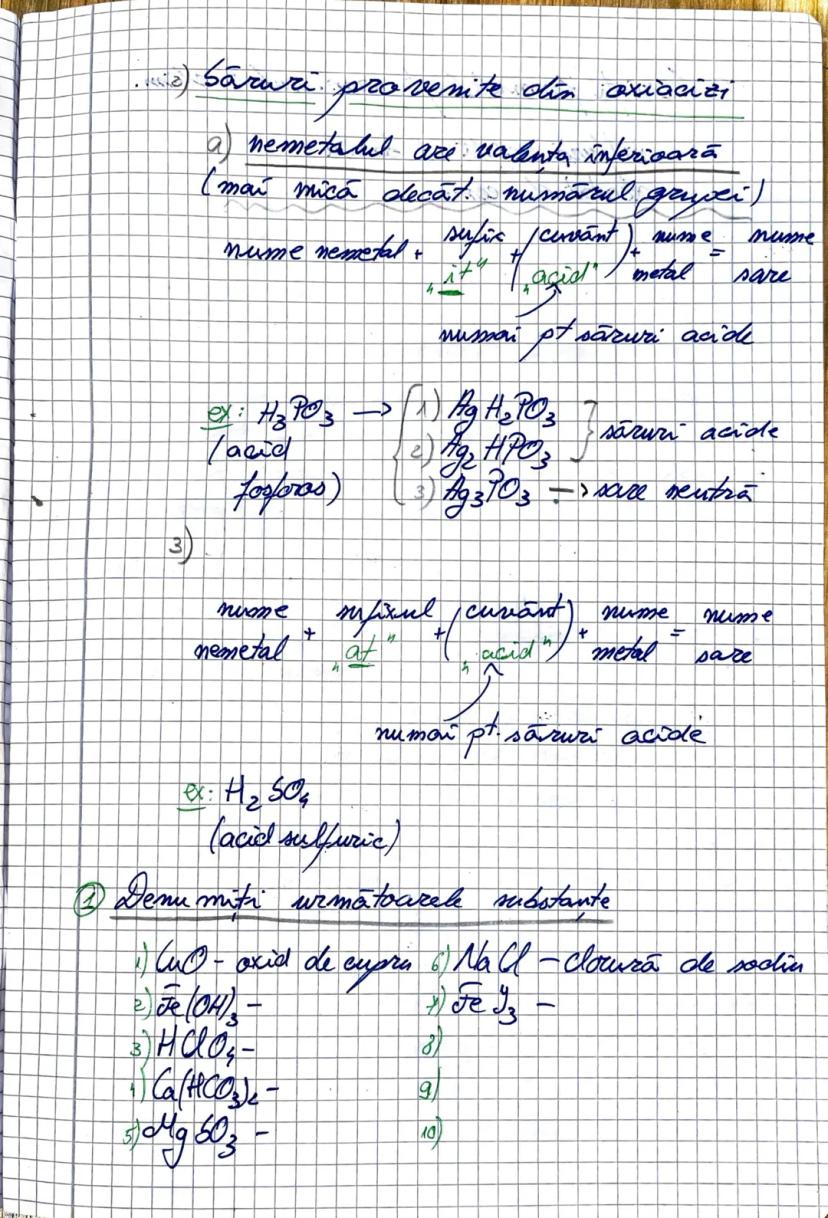 2) Săruri provenite din oxiacizi
a) nemetalul are valența inferioară
(mai mică decât numărul grupei)
nume nemetal + sufix „it" + (cuvânt „acid") + nume metal = nume sare
numai pt săruri acide
ex: H₃PO₃ → 1) AgH₂PO₃
(acid 2) Ag₂HPO₃ } săruri acide
fosforos) 3) Ag₃PO₃ → sare neutră
3)
nume nemetal + sufixul „at" + (cuvânt „acid") + nume metal = nume sare
numai pt. săruri acide
ex: H₂SO₄
(acid sulfuric)
① Denumiți următoarele substanțe
1) CuO - oxid de cupru 6) NaCl - clorură de sodiu
2) Fe(OH)₃ - 7) FeY₃ -
3) HClO₄ - 8)
4) Ca(HCO₃)₂ - 9)
5) MgSO₃ - 10)